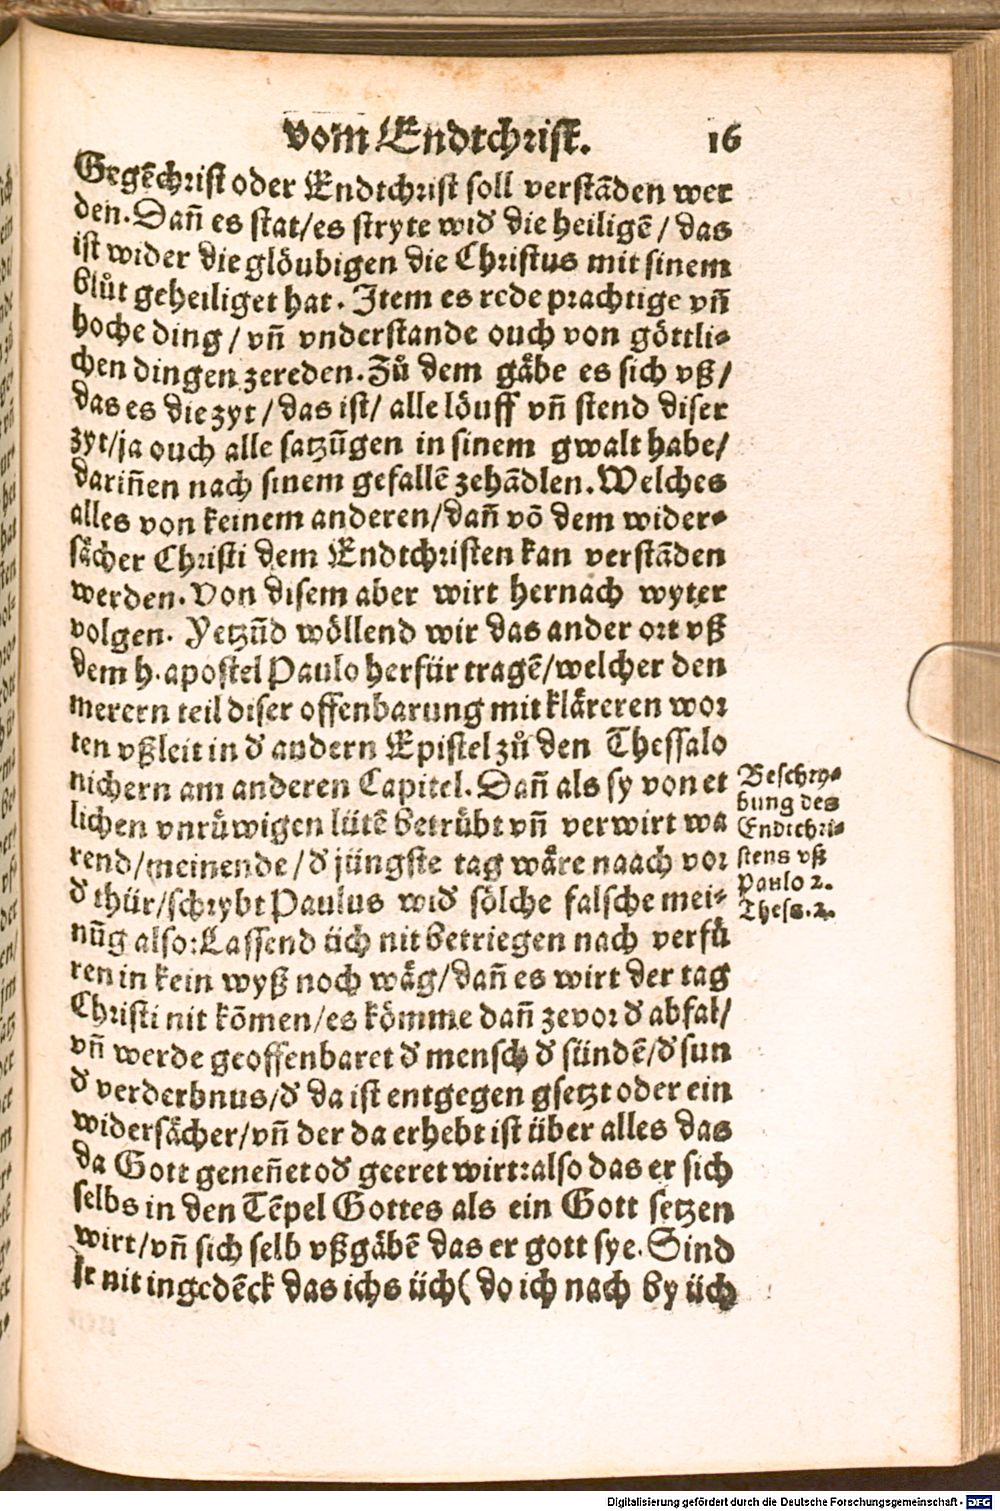 vom Endtchrist. 16
Gegẽchrist oder Endtchrist soll verstãden wer
den. Dañ es stat/es stryte wid̕ die heiligẽ/das
ist wider die glöubigen die Christus mit sinem
blůt geheiliget hat. Item es rede prachtige vñ
hoche ding/vñ vnderstande ouch von göttli-
chen dingen zereden. Zů dem gäbe es sich vß/
das es die zyt/das ist/alle löuff vñ stend diser
zyt/ja ouch alle satzũgen in sinem gwalt habe/
dariñen nach sinem gefallẽ zehãdlen. Welches
alles von keinem anderen/dañ võ dem wider-
sächer Christi dem Endtchristen kan verstãden
werden. Von disem aber wirt hernach wyter
volgen. Yetzũd wöllend wir das ander ort vß
dem h. apostel Paulo herfür tragẽ/welcher den
merern teil diser offenbarung mit kläreren wor
ten vßleit in d̕ andern Epistel zů den Thessalo
nichern am anderen Capitel. Dañ als sy von et
lichen vnrůwigen lütẽ betrübt vñ verwirt wa
rend/meinende/d̕ jüngste tag wäre naach vor
d̕ thür/schrybt Paulus wid̕ sölche falsche mei-
nũg also: Lassend üch nit betriegen nach verfü
ren in kein wyß noch wäg/dañ es wirt der tag
Christi nit kõmen/es kömme dañ zevor d̕ abfal/
vñ werde geoffenbaret d̕ mensch d̕ sündẽ/d̕ sun
d̕ verderbnus/d̕ da ist entgegen gsetzt oder ein
widersächer/vñ der da erhebt ist über alles das
da Gott geneñet od̕ geeret wirt: also das er sich
selbs in den Tẽpel Gottes als ein Gott setzen
wirt/vñ sich selb vßgäbẽ das er gott sye. Sind
Ir nit ingedẽck das ichs üch (do ich nach by üch
Beschry-
bung des
Endtchri-
stens vß
Paulo 2.
Thess. 2.
Digitalisierung gefördert durch die Deutsche Forschungsgemeinschaft - DFG